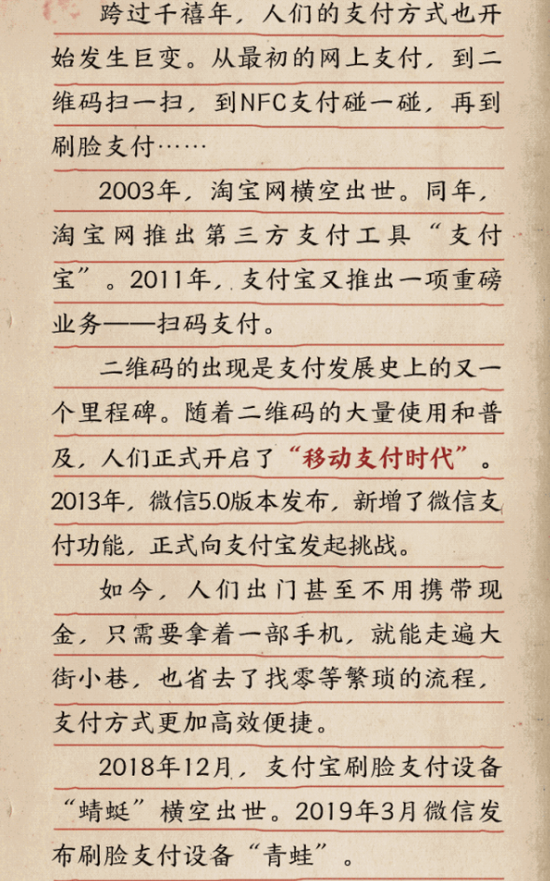 跨过千禧年，人们的支付方式也开
始发生巨变。从最初的网上支付，到二
维码扫一扫，到NFC支付碰一碰，再到
刷脸支付……
2003年，淘宝网横空出世。同年，
淘宝网推出第三方支付工具“支付
宝”。2011年，支付宝又推出一项重磅
业务——扫码支付。
二维码的出现是支付发展史上的又一
个里程碑。随着二维码的大量使用和普
及，人们正式开启了“移动支付时代”。
2013年，微信5.0版本发布，新增了微信支
付功能，正式向支付宝发起挑战。
如今，人们出门甚至不用携带现
金，只需要拿着一部手机，就能走遍大
街小巷，也省去了找零等繁琐的流程，
支付方式更加高效便捷。
2018年12月，支付宝刷脸支付设备
“蜻蜓”横空出世。2019年3月微信发
布刷脸支付设备“青蛙”。